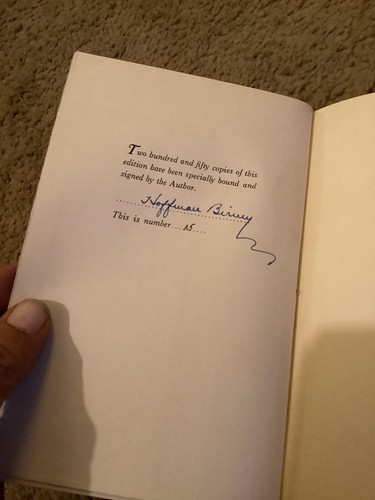 Two hundred and fifty copies of this
edition have been specially bound and
signed by the Author.
Hoffman Birney
This is number....15....